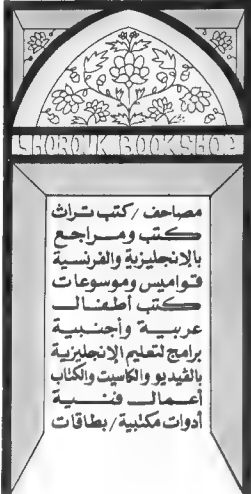 SHOROUK BOOKSHOP
مصاحف / كتب تراث
كتب ومراجع
بالإنجليزية والفرنسية
قواميس وموسوعات
كتب أطفال
عربية وأجنبية
برامج لتعليم الإنجليزية
بالفيديو والكاسيت والكتاب
أعمال فنية
أدوات مكتبية / بطاقات